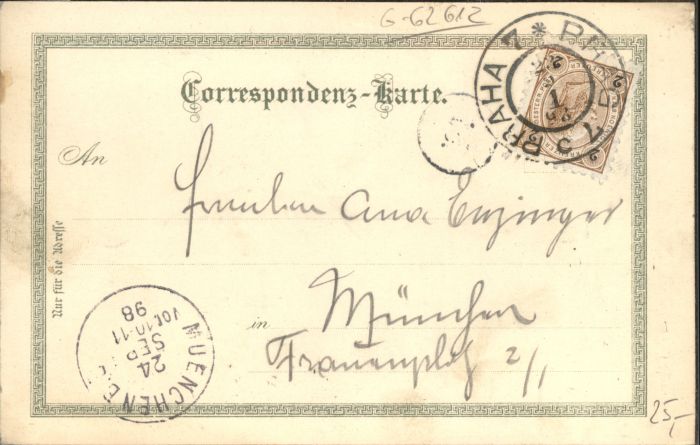 G-62612
Correspondenz-Karte.
PRAHA 7 * PRAG
An
Fräulein Ana Enzinger
Nur für die Adresse
in München
Frauenplatz 2/I
MUENCHEN
24
SEP
Vor.10-11
98
25,-